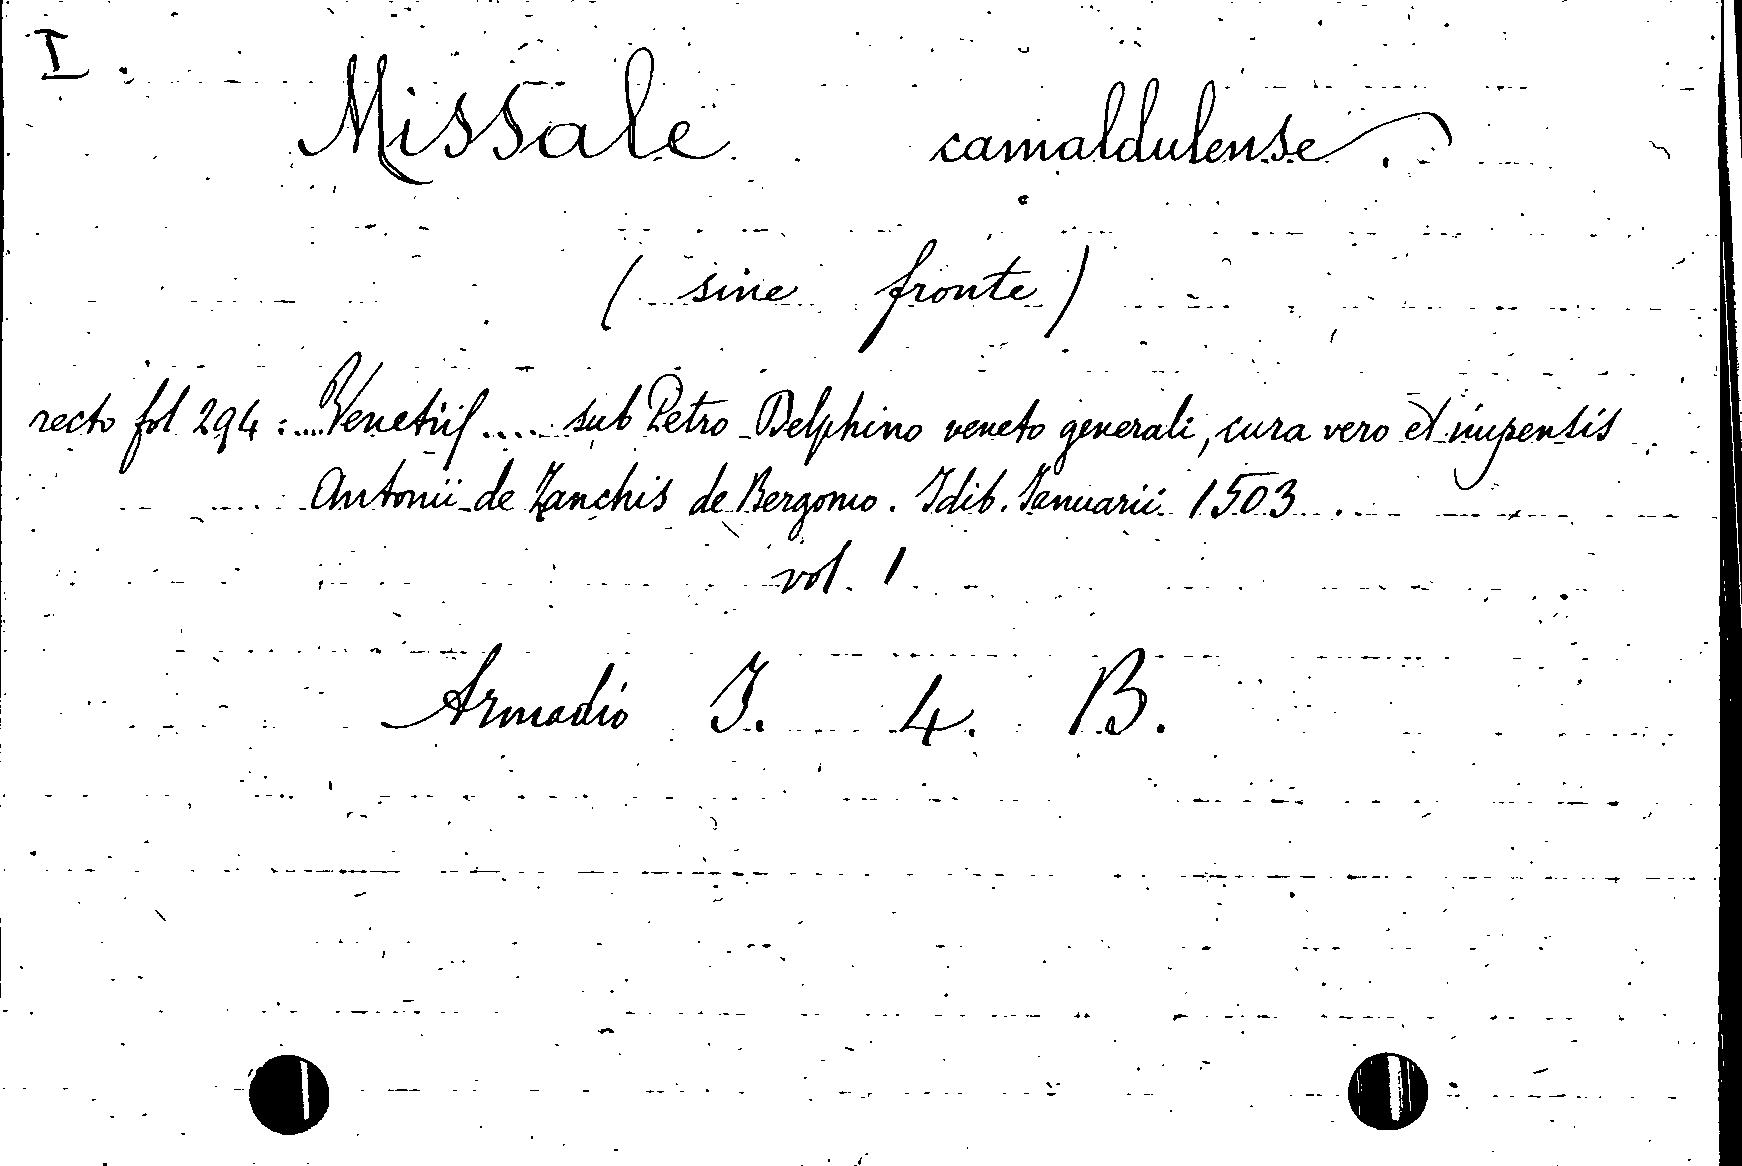 I.
Missale camaldulense.
( sine fronte )
recto fol 294 : .... Venetiis .... sub Petro Delphino veneto generali, cura vero et impensis
Antonii de Zanchis de Bergomo. Idib. Ianuarii 1503.
vol. 1
Armadio I. 4. B.